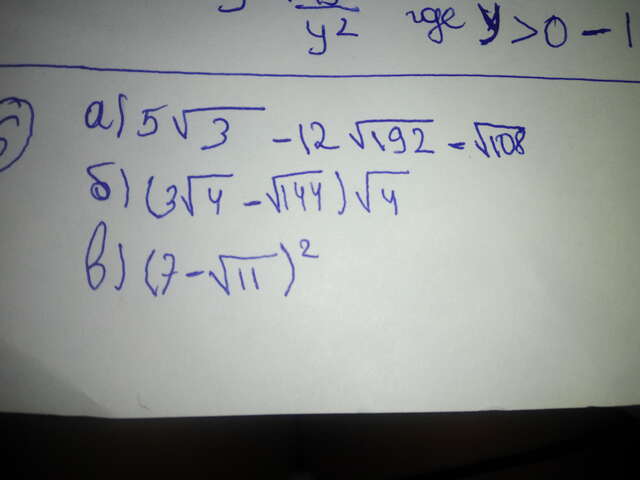 y² где y>0 - 1
5)
а) 5√3 - 12√192 - √108
б) (3√4 - √144)√4
в) (7 - √11)²